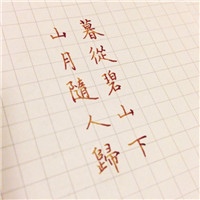 暮從碧山下
山月隨人歸